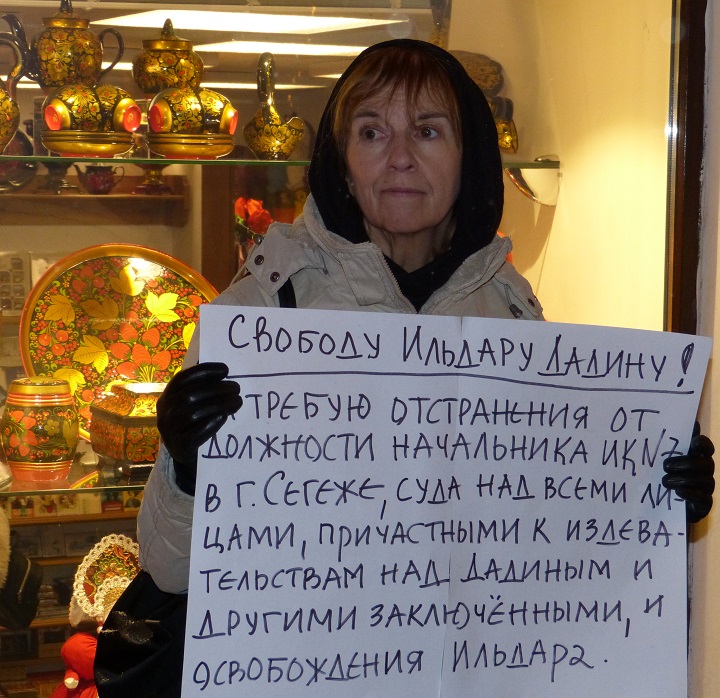 Свободу Ильдару Дадину!
Я требую отстранения от
должности начальника ИК N7
в г. Сегеже, суда над всеми ли-
цами, причастными к издева-
тельствам над Дадиным и
другими заключёнными, и
освобождения Ильдара.